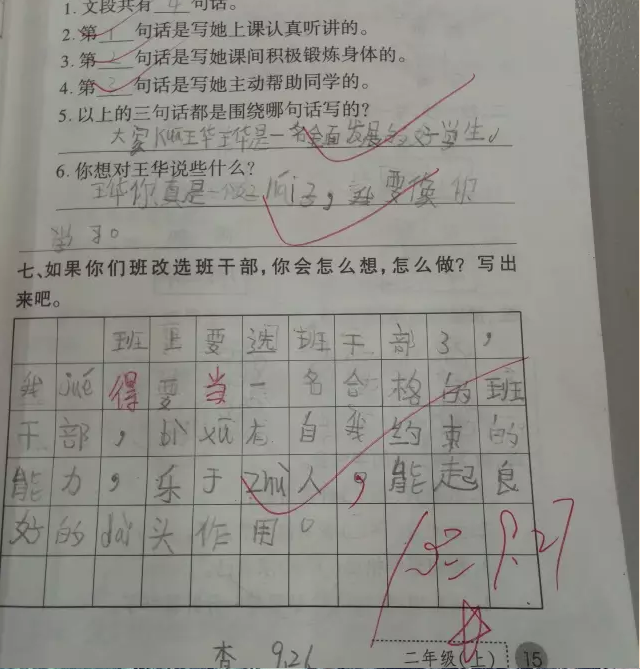 1. 文段共有 4 句话。
2. 第 1 句话是写她上课认真听讲的。
3. 第 2 句话是写她课间积极锻炼身体的。
4. 第 3 句话是写她主动帮助同学的。
5. 以上的三句话都是围绕哪句话写的?
大家kuā王华王华是一名全面发展的好学生。
6. 你想对王华说些什么?
王华你真是一个好 ,我要像你
学习。
七、如果你们班改选班干部,你会怎么想,怎么做? 写出
来吧。
班上要选班干部了,
我jué得要当一名合格的班
干部,bì xū有自我约束的
能力,乐于zhù人,能起良
好的dài头作用。
9.27
查 9.21
二年级(上) 15